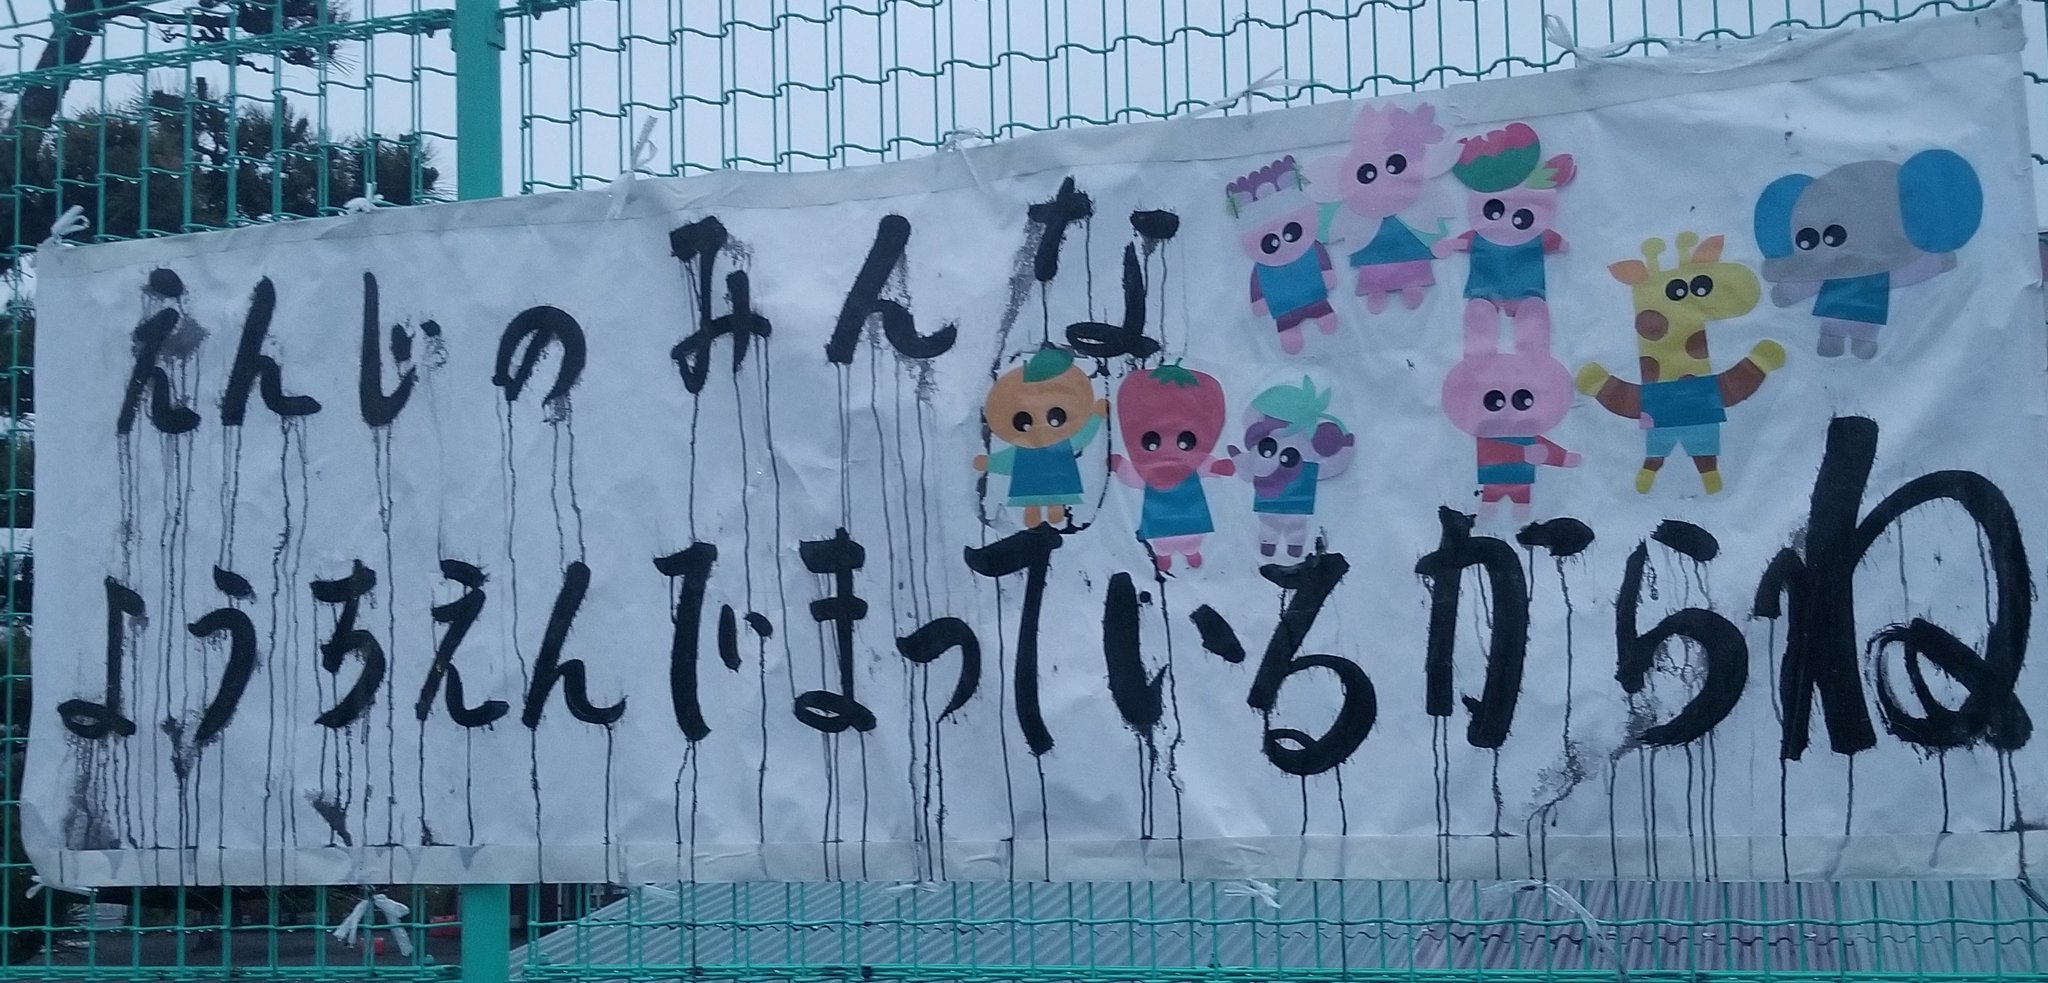 えんじの みんな
ようちえんで まっているからね